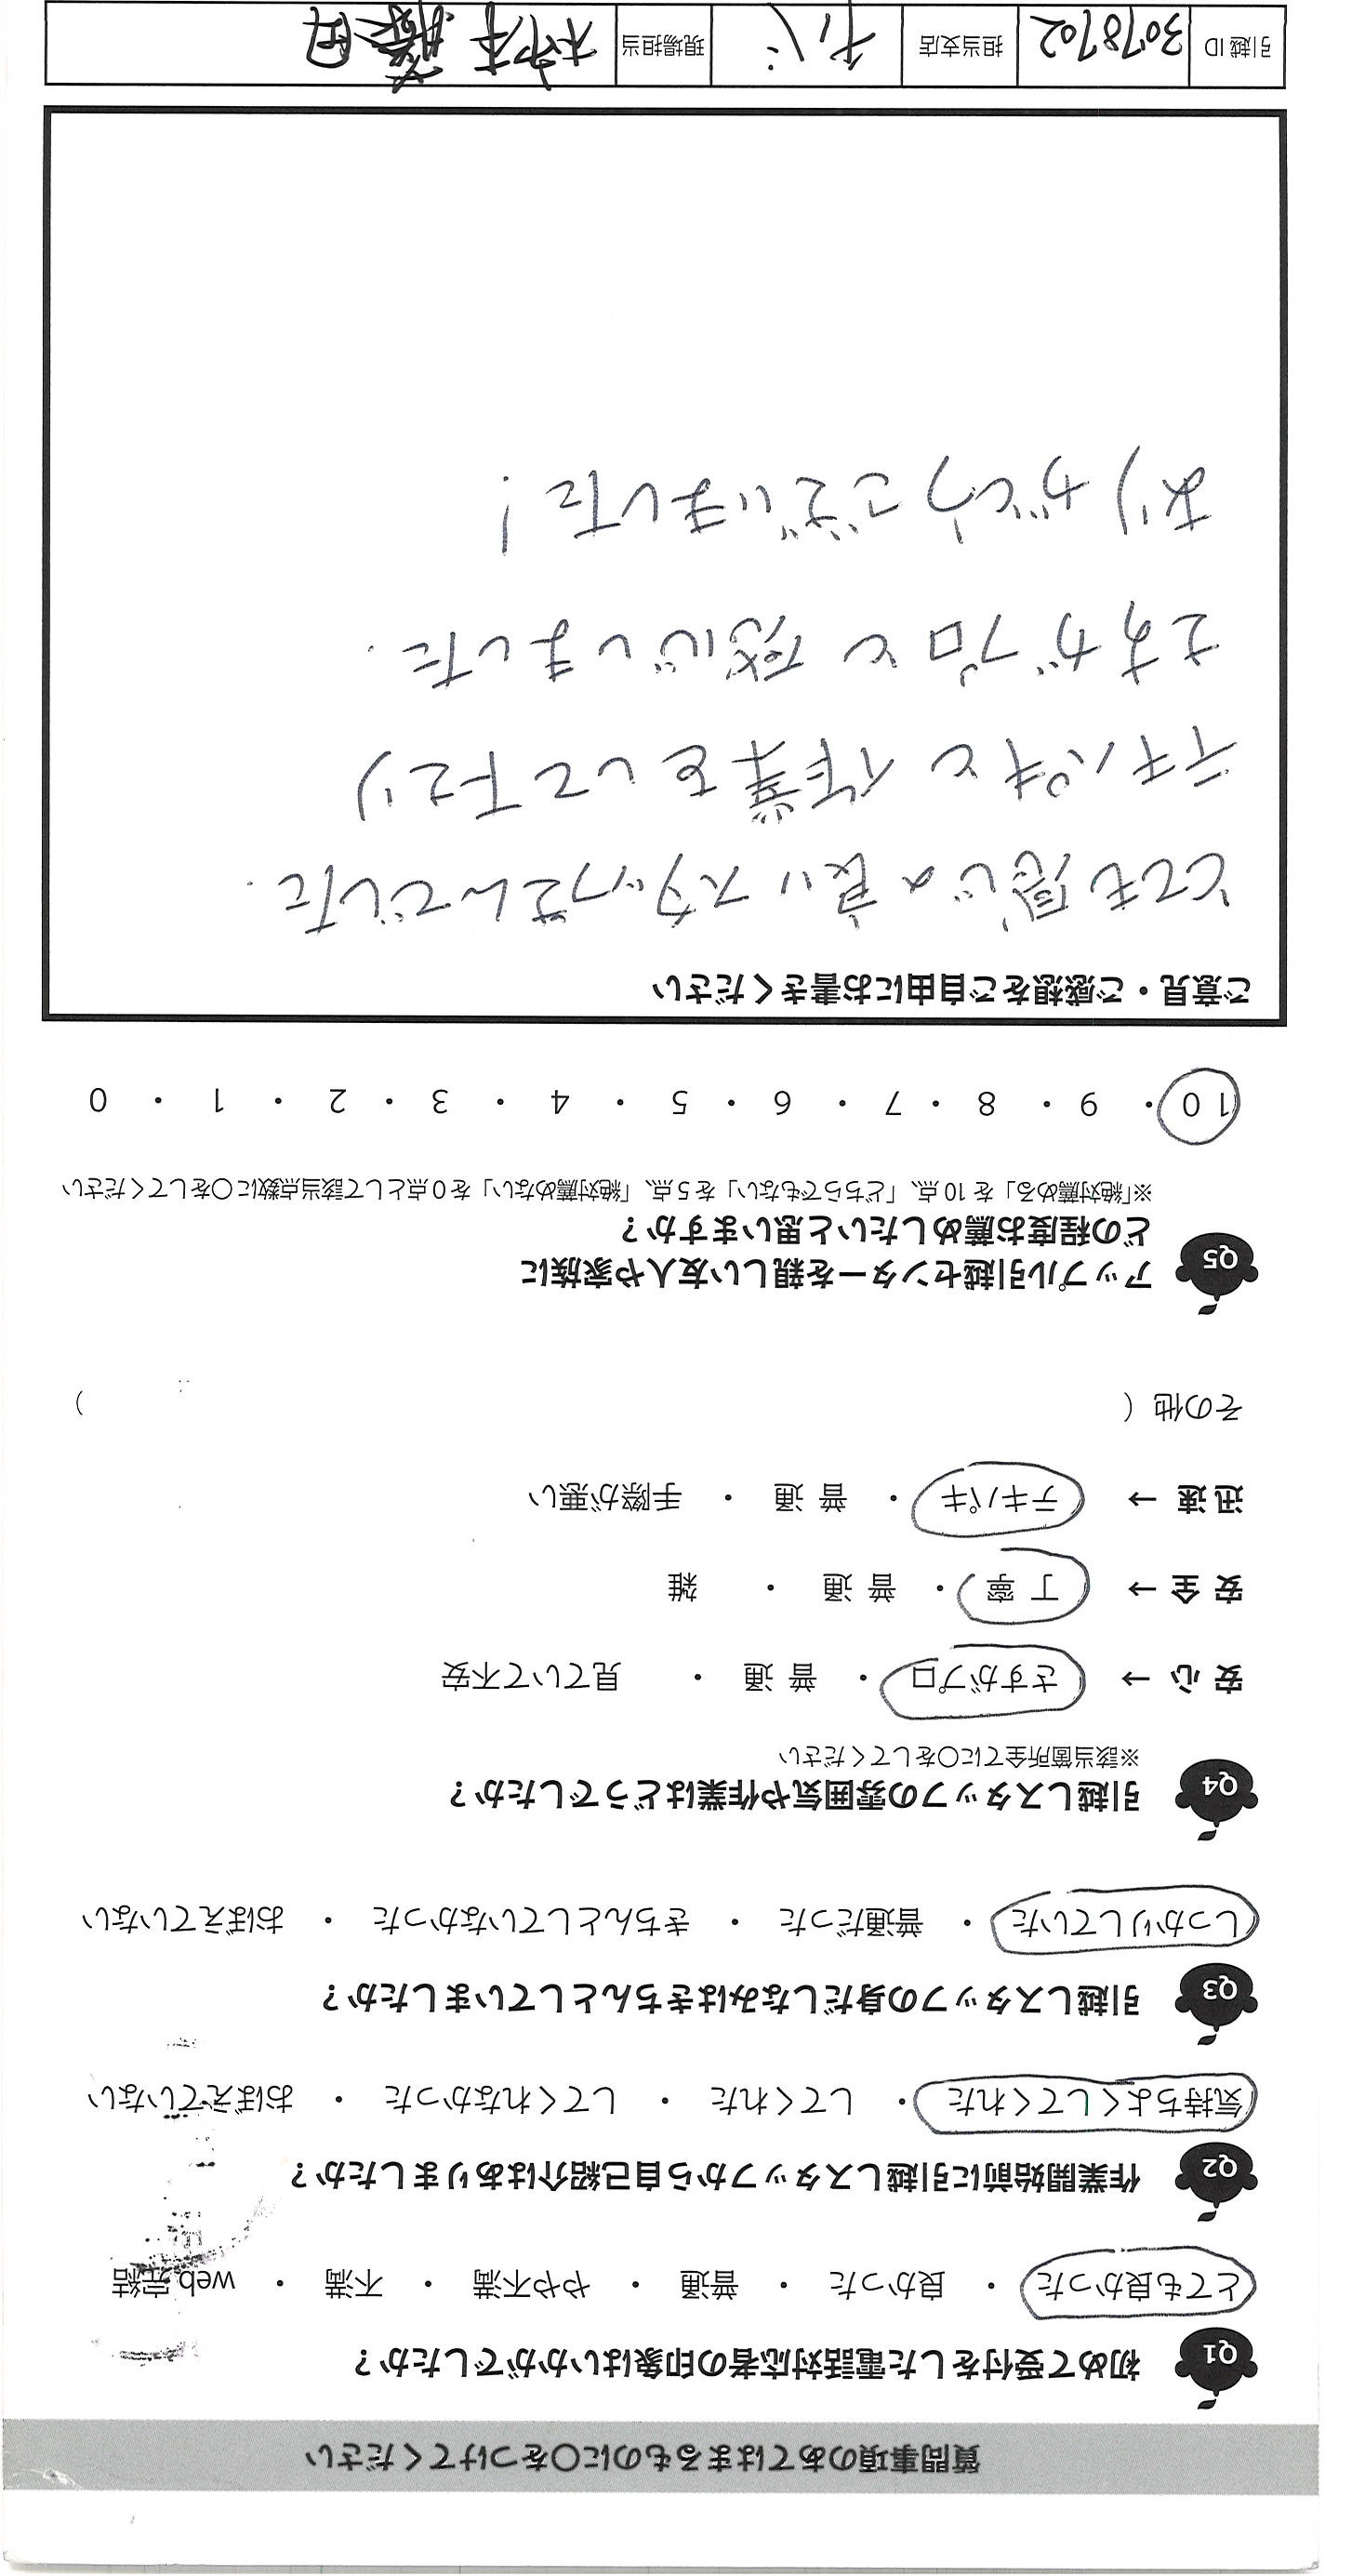 質問事項のあてはまるものに○をつけてください
Q1 初めて受付をした電話対応者の印象はいかがでしたか？
とても良かった ・ 良かった ・ 普通 ・ やや不満 ・ 不満 ・ web完結
Q2 作業開始前に引越しスタッフから自己紹介はありましたか？
気持ちよくしてくれた ・ してくれた ・ してくれなかった ・ おぼえていない
Q3 引越しスタッフの身だしなみはきちんとしていましたか？
しっかりしていた ・ 普通だった ・ きちんとしていなかった ・ おぼえていない
Q4 引越しスタッフの雰囲気や作業はどうでしたか？
※該当箇所全てに○をしてください
安心 → さすがプロ ・ 普通 ・ 見ていて不安
安全 → 丁寧 ・ 普通 ・ 雑
迅速 → テキパキ ・ 普通 ・ 手際が悪い
その他（ ）
Q5 アップル引越センターを親しい友人や家族に
どの程度お薦めしたいと思いますか？
※「絶対薦める」を10点、「どちらでもない」を5点、「絶対薦めない」を0点として該当点数に○をしてください
10 ・ 9 ・ 8 ・ 7 ・ 6 ・ 5 ・ 4 ・ 3 ・ 2 ・ 1 ・ 0
ご意見・ご感想をご自由にお書きください
とても感じの良いスタッフさんでした.
テキパキと作業をして下さり
さすがプロと感じいました.
ありがとうございました!
引越ID 3078702 担当支店 現場担当